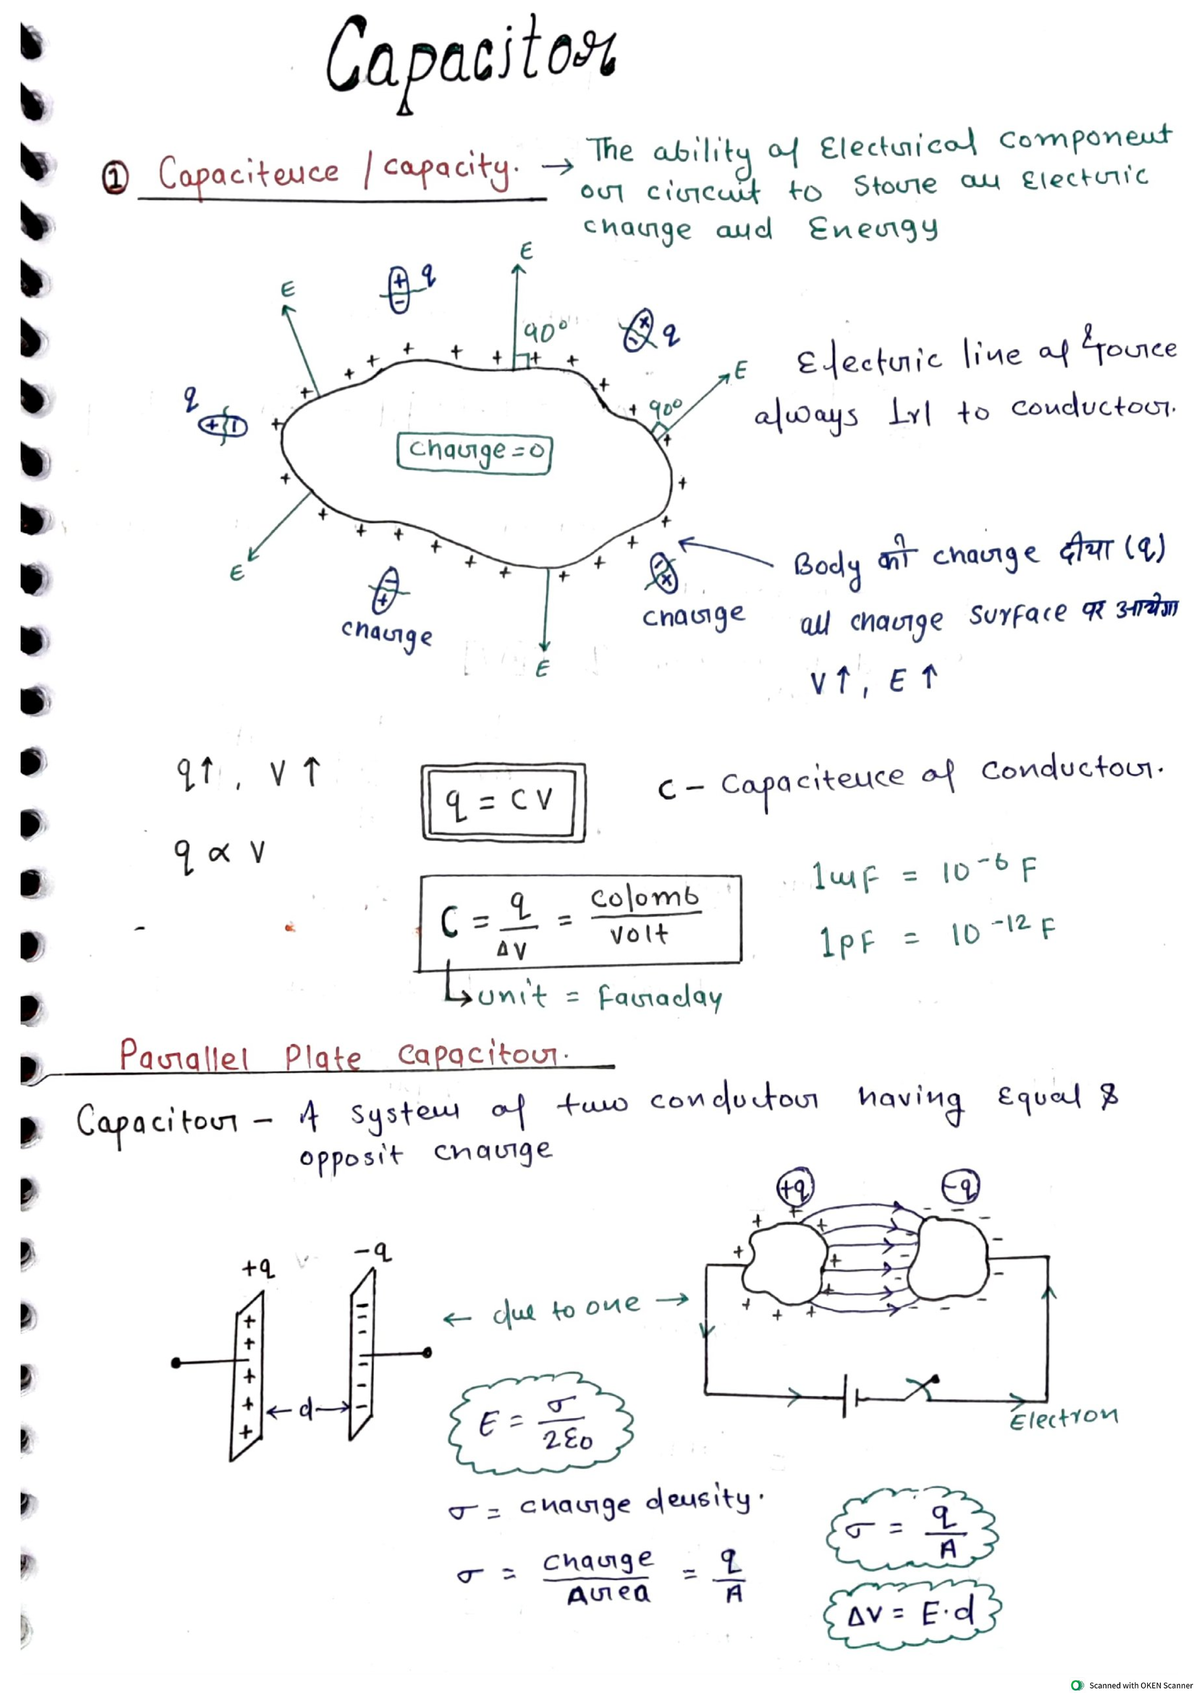 Capacitor
① Capacitence / capacity. → The ability of Electrical Component
our circuit to Store an Electric
charge and Energy
E
E
q
90°
q
E
90°
q
Electric line of force
always ⊥rl to conductor.
Charge = 0
E
charge
charge
E
Body को charge दीया (q)
all charge surface पर आयेगा
V↑, E↑
q↑, V↑
q = CV
C – Capacitence of Conductor.
q ∝ V
C = q/ΔV = Colomb/Volt
↳ unit = Faraday
1μF = 10⁻⁶ F
1pF = 10⁻¹² F
Parallel Plate Capacitor.
Capacitor – A system of two conductor having Equal &
opposit charge
+q
-q
+q
-q
← d →
← due to one →
Electron
E = σ/2ε₀
σ = charge density.
σ = Charge/Area = q/A
σ = q/A
ΔV = E·d
Scanned with OKEN Scanner